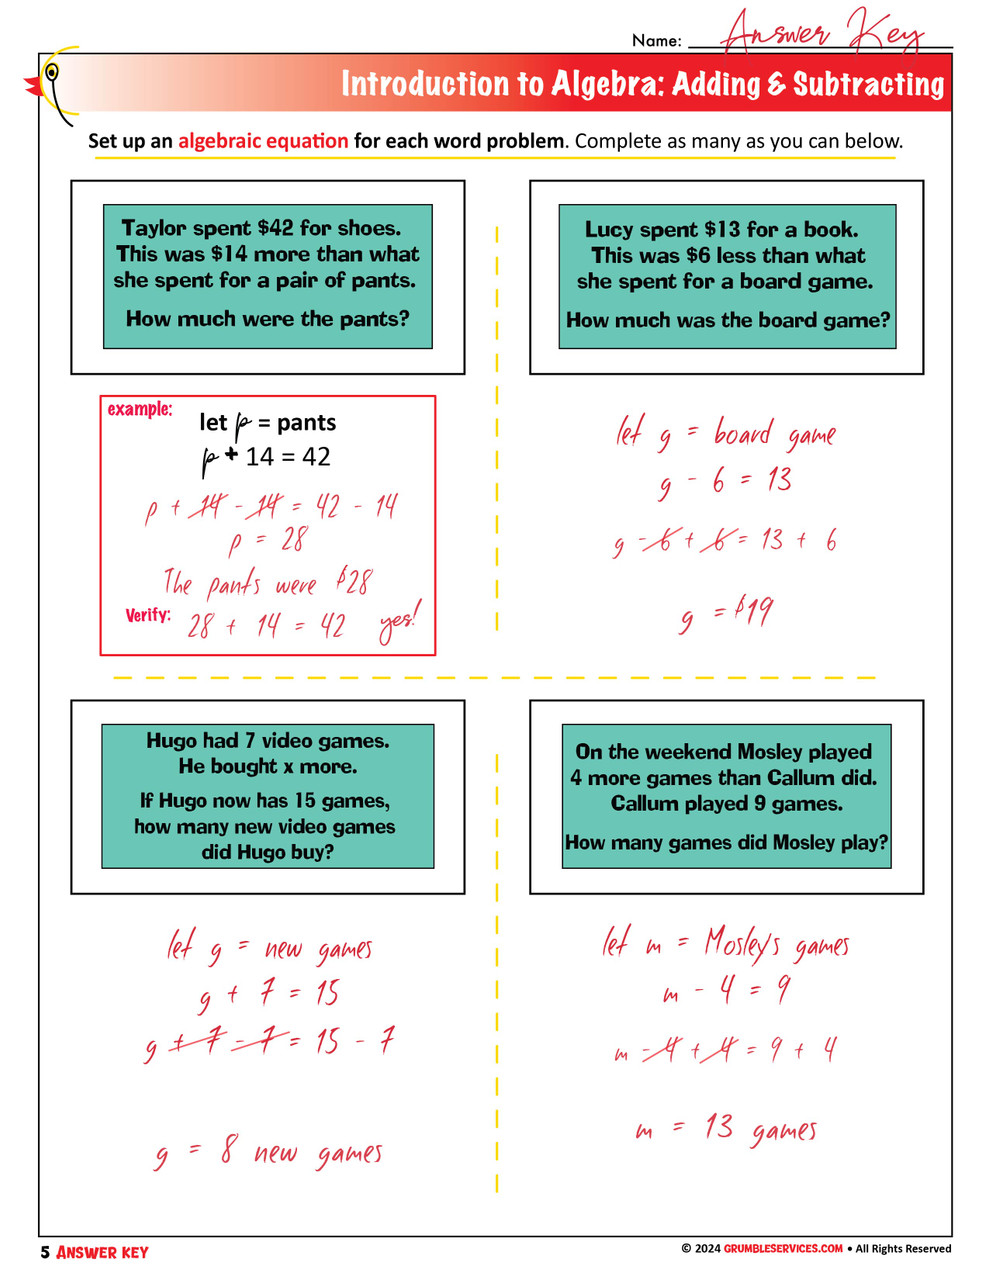 Name: Answer Key
Introduction to Algebra: Adding & Subtracting
Set up an algebraic equation for each word problem. Complete as many as you can below.
Taylor spent $42 for shoes.
This was $14 more than what
she spent for a pair of pants.
How much were the pants?
Lucy spent $13 for a book.
This was $6 less than what
she spent for a board game.
How much was the board game?
example:
let p = pants
p + 14 = 42
p + 14 - 14 = 42 - 14
p = 28
The pants were $28
Verify: 28 + 14 = 42 yes!
let g = board game
g - 6 = 13
g - 6 + 6 = 13 + 6
g = $19
Hugo had 7 video games.
He bought x more.
If Hugo now has 15 games,
how many new video games
did Hugo buy?
On the weekend Mosley played
4 more games than Callum did.
Callum played 9 games.
How many games did Mosley play?
let g = new games
g + 7 = 15
g + 7 - 7 = 15 - 7
g = 8 new games
let m = Mosley's games
m - 4 = 9
m - 4 + 4 = 9 + 4
m = 13 games
5 ANSWER KEY
© 2024 GRUMBLESERVICES.COM • All Rights Reserved